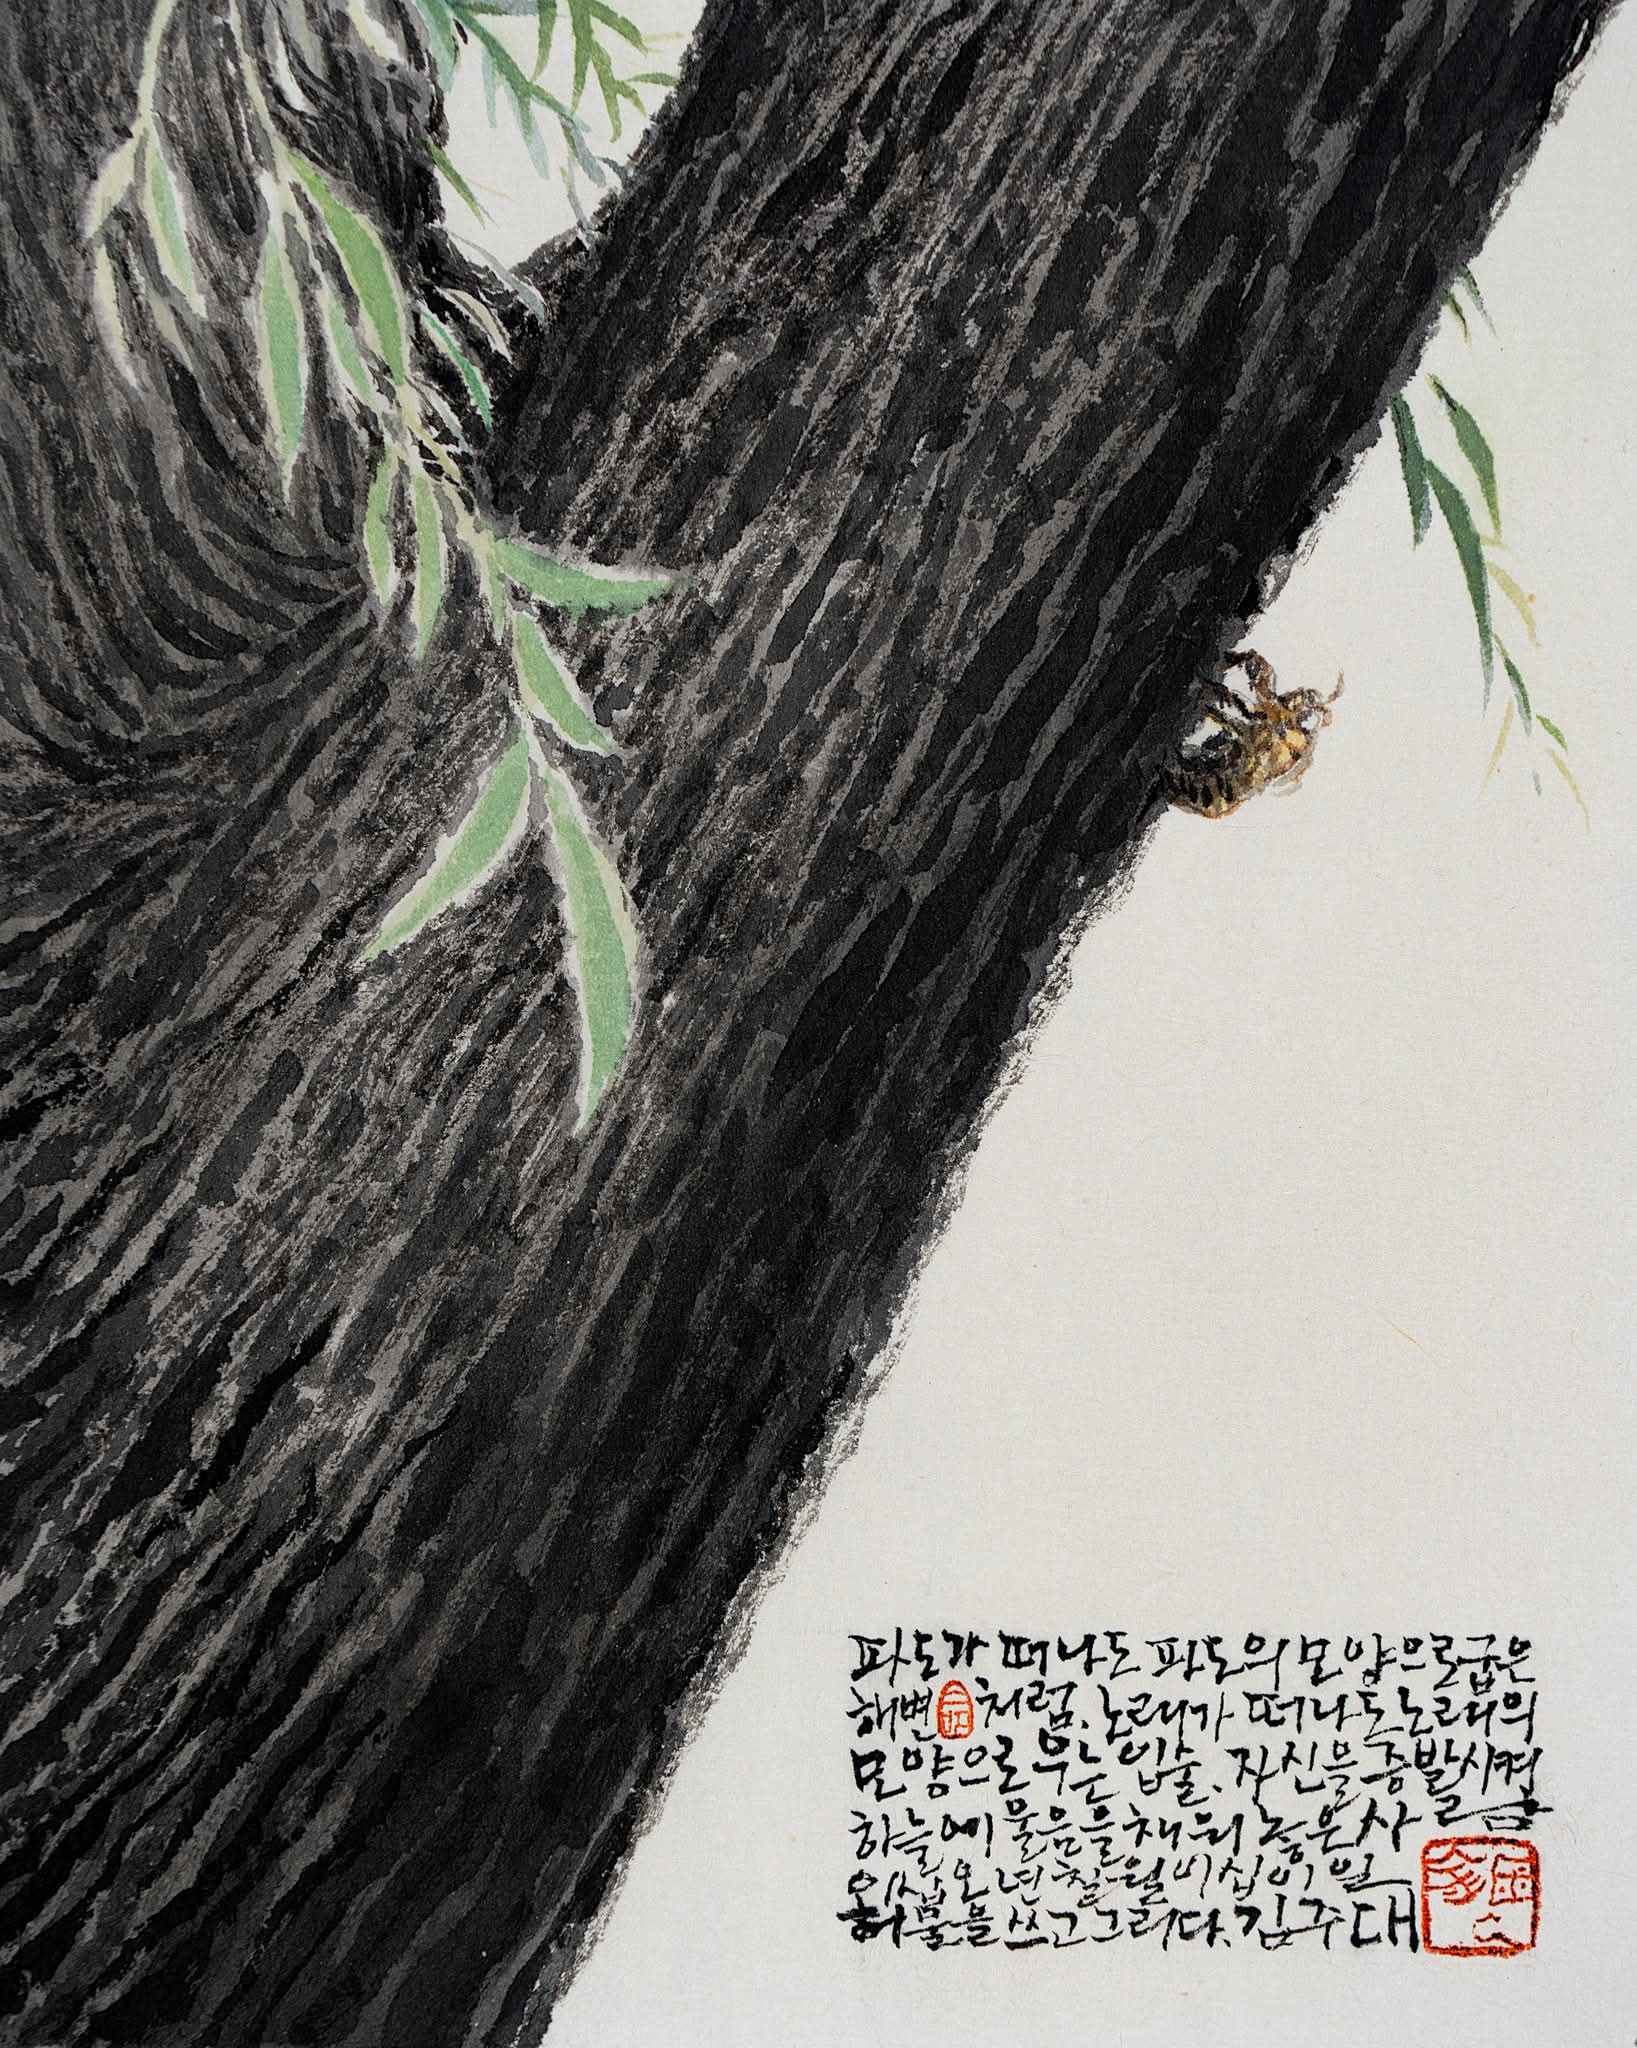 파도가 떠나도 파도의 모양으로 굽은
해변처럼. 노래가 떠나도 노래의
모양으로 우는 입술. 자신을 증발시켜
하늘에 울음을 채워 놓은 사람
이십오년 칠월 이십이일
허물을 쓰고 그리다. 김주대